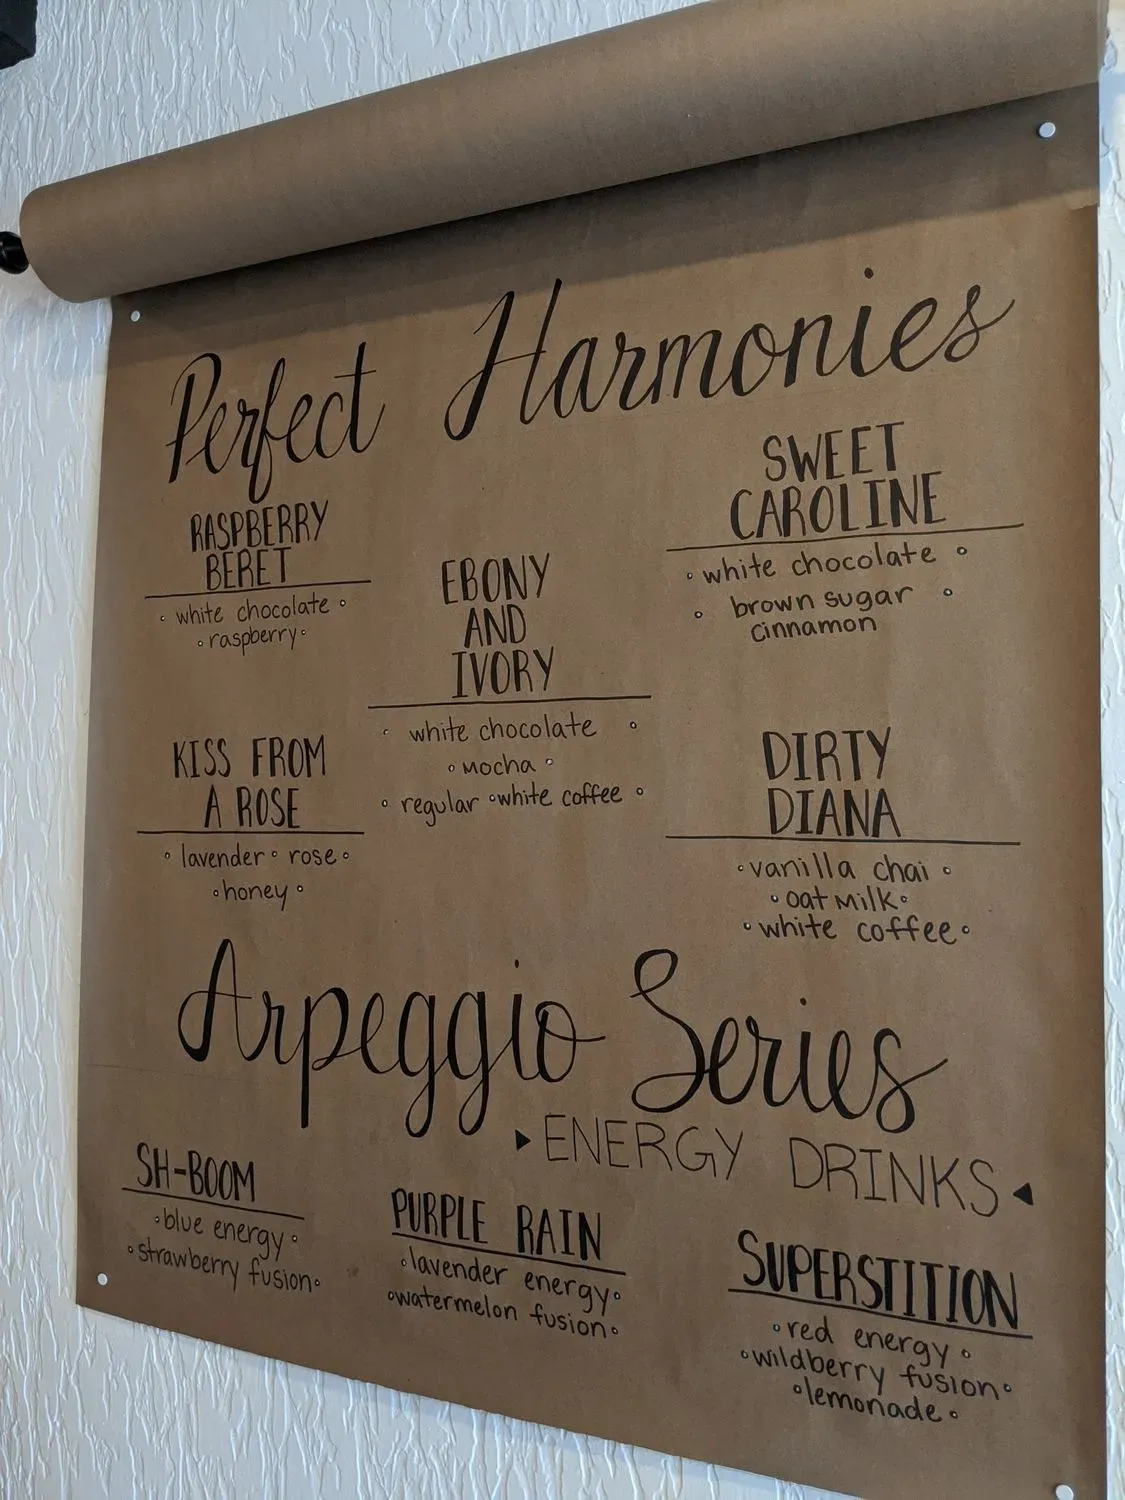 Perfect Harmonies
RASPBERRY
BERET
white chocolate
raspberry
EBONY
AND
IVORY
white chocolate
mocha
regular white coffee
SWEET
CAROLINE
white chocolate
brown sugar
cinnamon
KISS FROM
A ROSE
lavender rose
honey
DIRTY
DIANA
vanilla chai
oat milk
white coffee
Arpeggio Series
ENERGY DRINKS
SH-BOOM
blue energy
strawberry fusion
PURPLE RAIN
lavender energy
watermelon fusion
SUPERSTITION
red energy
wildberry fusion
lemonade